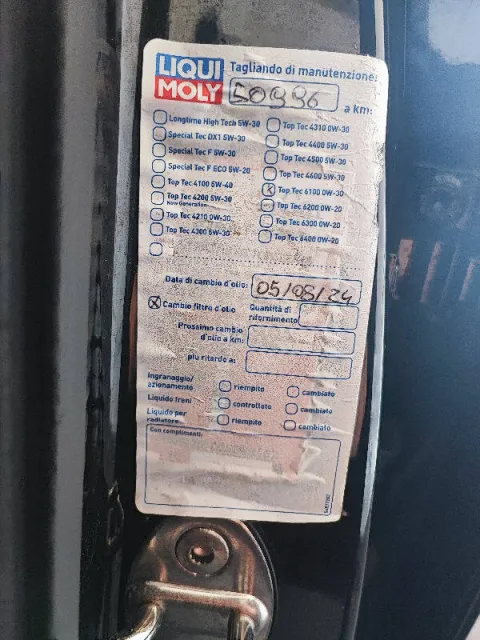 LIQUI
MOLY
Tagliando di manutenzione:
50996 a km:
Longtime High Tech 5W-30
Special Tec DX1 5W-30
Special Tec F 5W-30
Special Tec F ECO 5W-20
Top Tec 4100 5W-40
Top Tec 4200 5W-30
New Generation
Top Tec 4210 0W-30
Top Tec 4300 5W-30
Top Tec 4310 0W-30
Top Tec 4400 5W-30
Top Tec 4500 5W-30
Top Tec 4600 5W-30
Top Tec 6100 0W-30
Top Tec 6200 0W-20
Top Tec 6300 0W-20
Top Tec 6400 0W-20
Data di cambio d'olio: 05/08/24
Cambio filtro d'olio
Quantità di
rifornimento
Prossimo cambio
d'olio a km:
più ritardo a:
Ingranaggio/
azionamento riempito cambiato
Liquido freni controllato cambiato
Liquido per
radiatore riempito cambiato
Con complimenti: